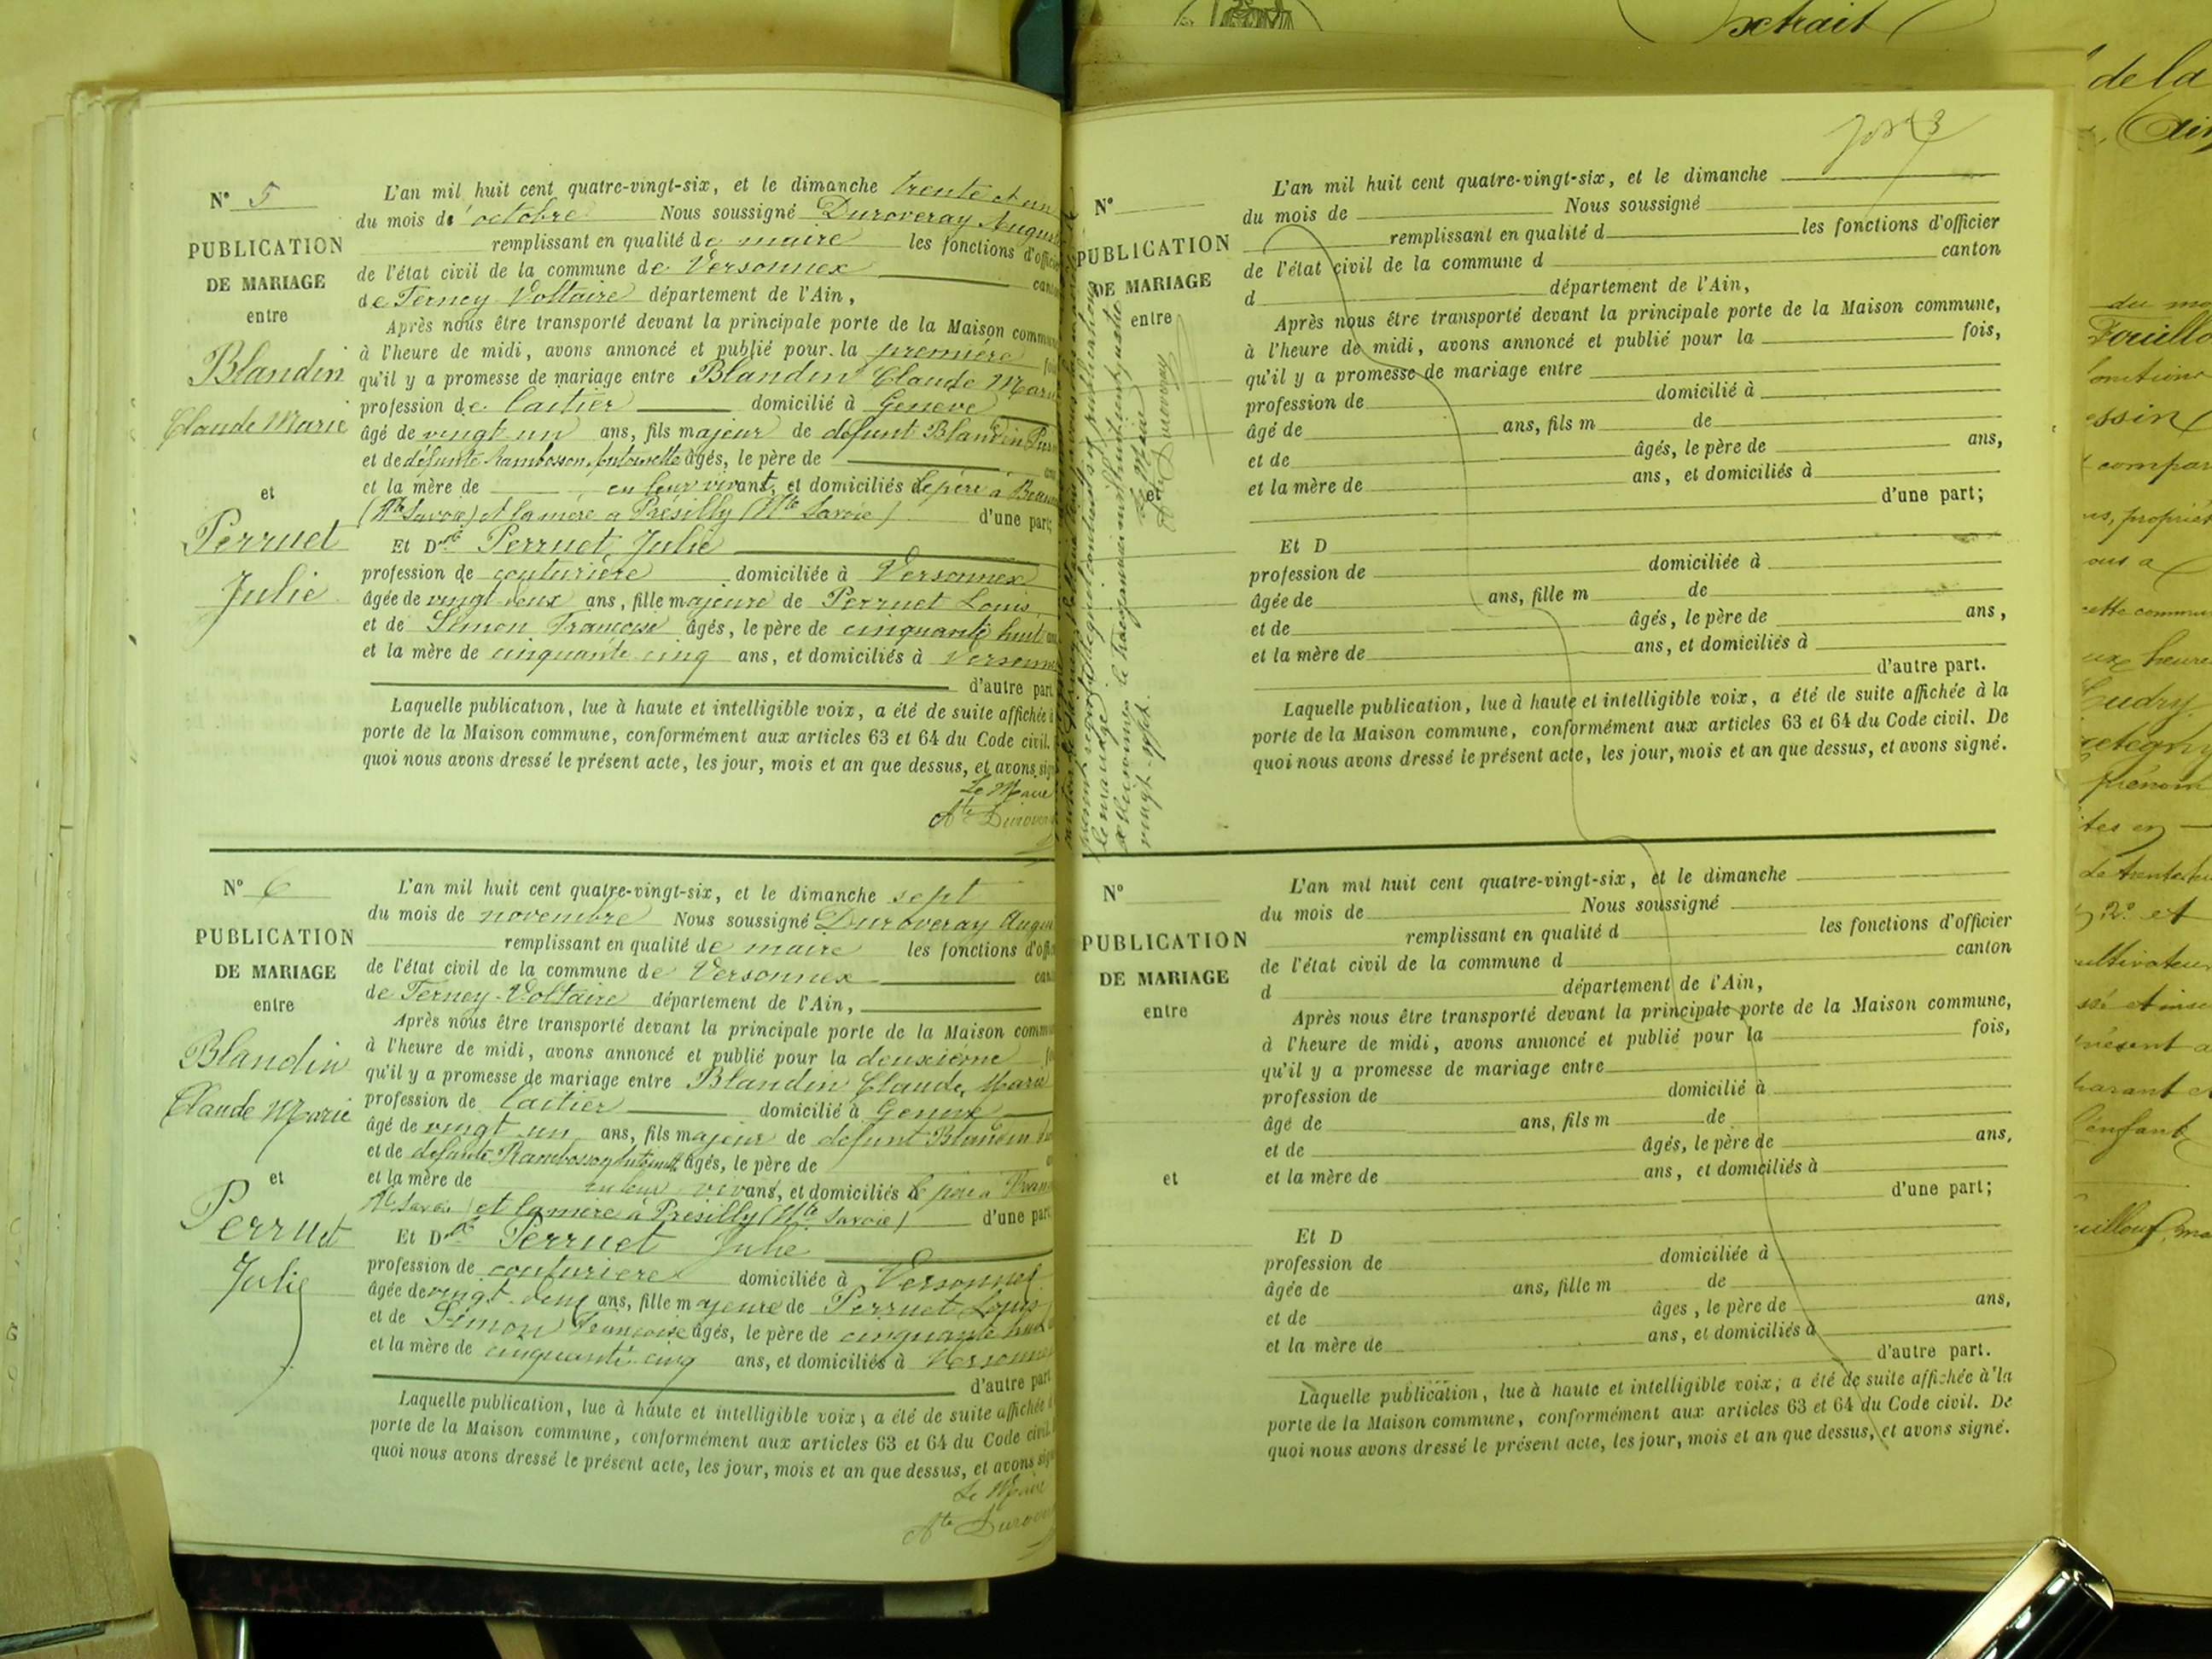 Extrait
de la
N° 5
PUBLICATION
DE MARIAGE
entre
Blandin
Claude Marie
et
Perruet
Julie
L'an mil huit cent quatre-vingt-six, et le dimanche trente et un
du mois de octobre Nous soussigné Duroveray August
remplissant en qualité de maire les fonctions d'officier
de l'état civil de la commune de Versonnex can
de Ferney-Voltaire département de l'Ain,
Après nous être transporté devant la principale porte de la Maison commu
à l'heure de midi, avons annoncé et publié pour la première
qu'il y a promesse de mariage entre Blandin Claude Mari
profession de laitier domicilié à Genève
âgé de vingt un ans, fils majeur de défunt Blandin
et de défunte Rambosson âgés, le père de
et la mère de en leur vivant, et domiciliés le père à
(Hte Savoie) et la mère à Présilly (Hte Savoie) d'une part;
Et Dlle Perruet Julie
profession de couturière domiciliée à Versonnex
âgée de vingt deux ans, fille majeure de Perruet Louis
et de Simon Françoise âgés, le père de cinquante huit
et la mère de cinquante cinq ans, et domiciliés à Versonn
d'autre part
Laquelle publication, lue à haute et intelligible voix, a été de suite affichée à
porte de la Maison commune, conformément aux articles 63 et 64 du Code civil.
quoi nous avons dressé le présent acte, les jour, mois et an que dessus, et avons sig
Le Maire
Ate Durover
N° 6
PUBLICATION
DE MARIAGE
entre
Blandin
Claude Marie
et
Perruet
Julie
L'an mil huit cent quatre-vingt-six, et le dimanche sept
du mois de novembre Nous soussigné Duroveray Augu
remplissant en qualité de maire les fonctions d'offi
de l'état civil de la commune de Versonnex can
de Ferney-Voltaire département de l'Ain,
Après nous être transporté devant la principale porte de la Maison commu
à l'heure de midi, avons annoncé et publié pour la deuxième
qu'il y a promesse de mariage entre Blandin Claude Marie
profession de laitier domicilié à Genève
âgé de vingt un ans, fils majeur de défunt Blandin
et de défunte Rambosson âgés, le père de
et la mère de en leur vivans, et domiciliés le père à
Hte Savoie) et la mère à Présilly (Hte Savoie) d'une part
Et Dlle Perruet Julie
profession de couturière domiciliée à Versonnex
âgée de vingt deux ans, fille majeure de Perruet Louis
et de Simon Françoise âgés, le père de cinquante huit
et la mère de cinquante cinq ans, et domiciliés à Versonne
d'autre part
Laquelle publication, lue à haute et intelligible voix, a été de suite affichée
porte de la Maison commune, conformément aux articles 63 et 64 du Code civil.
quoi nous avons dressé le présent acte, les jour, mois et an que dessus, et avons sig
Le Maire
Ate Durove
N°
PUBLICATION
DE MARIAGE
entre
et
le mariage
vingt-sept.
le Maire
Ate Duroveray
L'an mil huit cent quatre-vingt-six, et le dimanche
du mois de Nous soussigné
remplissant en qualité d les fonctions d'officier
de l'état civil de la commune d canton
d département de l'Ain,
Après nous être transporté devant la principale porte de la Maison commune,
à l'heure de midi, avons annoncé et publié pour la fois,
qu'il y a promesse de mariage entre
profession de domicilié à
âgé de ans, fils m de
et de âgés, le père de ans,
et la mère de ans, et domiciliés à
d'une part;
Et D
profession de domiciliée à
âgée de ans, fille m de
et de âgés, le père de ans,
et la mère de ans, et domiciliés à
d'autre part.
Laquelle publication, lue à haute et intelligible voix, a été de suite affichée à la
porte de la Maison commune, conformément aux articles 63 et 64 du Code civil. De
quoi nous avons dressé le présent acte, les jour, mois et an que dessus, et avons signé.
N°
PUBLICATION
DE MARIAGE
entre
et
L'an mil huit cent quatre-vingt-six, et le dimanche
du mois de Nous soussigné
remplissant en qualité d les fonctions d'officier
de l'état civil de la commune d canton
d département de l'Ain,
Après nous être transporté devant la principale porte de la Maison commune,
à l'heure de midi, avons annoncé et publié pour la fois,
qu'il y a promesse de mariage entre
profession de domicilié à
âgé de ans, fils m de
et de âgés, le père de ans,
et la mère de ans, et domiciliés à
d'une part;
Et D
profession de domiciliée à
âgée de ans, fille m de
et de âges, le père de ans,
et la mère de ans, et domiciliés à
d'autre part.
Laquelle publication, lue à haute et intelligible voix; a été de suite affichée à la
porte de la Maison commune, conformément aux articles 63 et 64 du Code civil. De
quoi nous avons dressé le présent acte, les jour, mois et an que dessus, et avons signé.
compar
propriét
ous a
cette commu
heure
Cudry
prénom
2° et
ultivateu
présent a
l'enfant